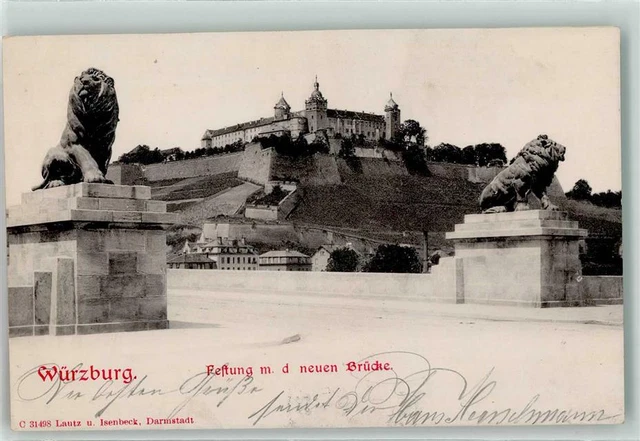 Würzburg. Festung m. d neuen Brücke.
Die besten Grüße sendet dir Hans
C 31498 Lautz u. Isenbeck, Darmstadt